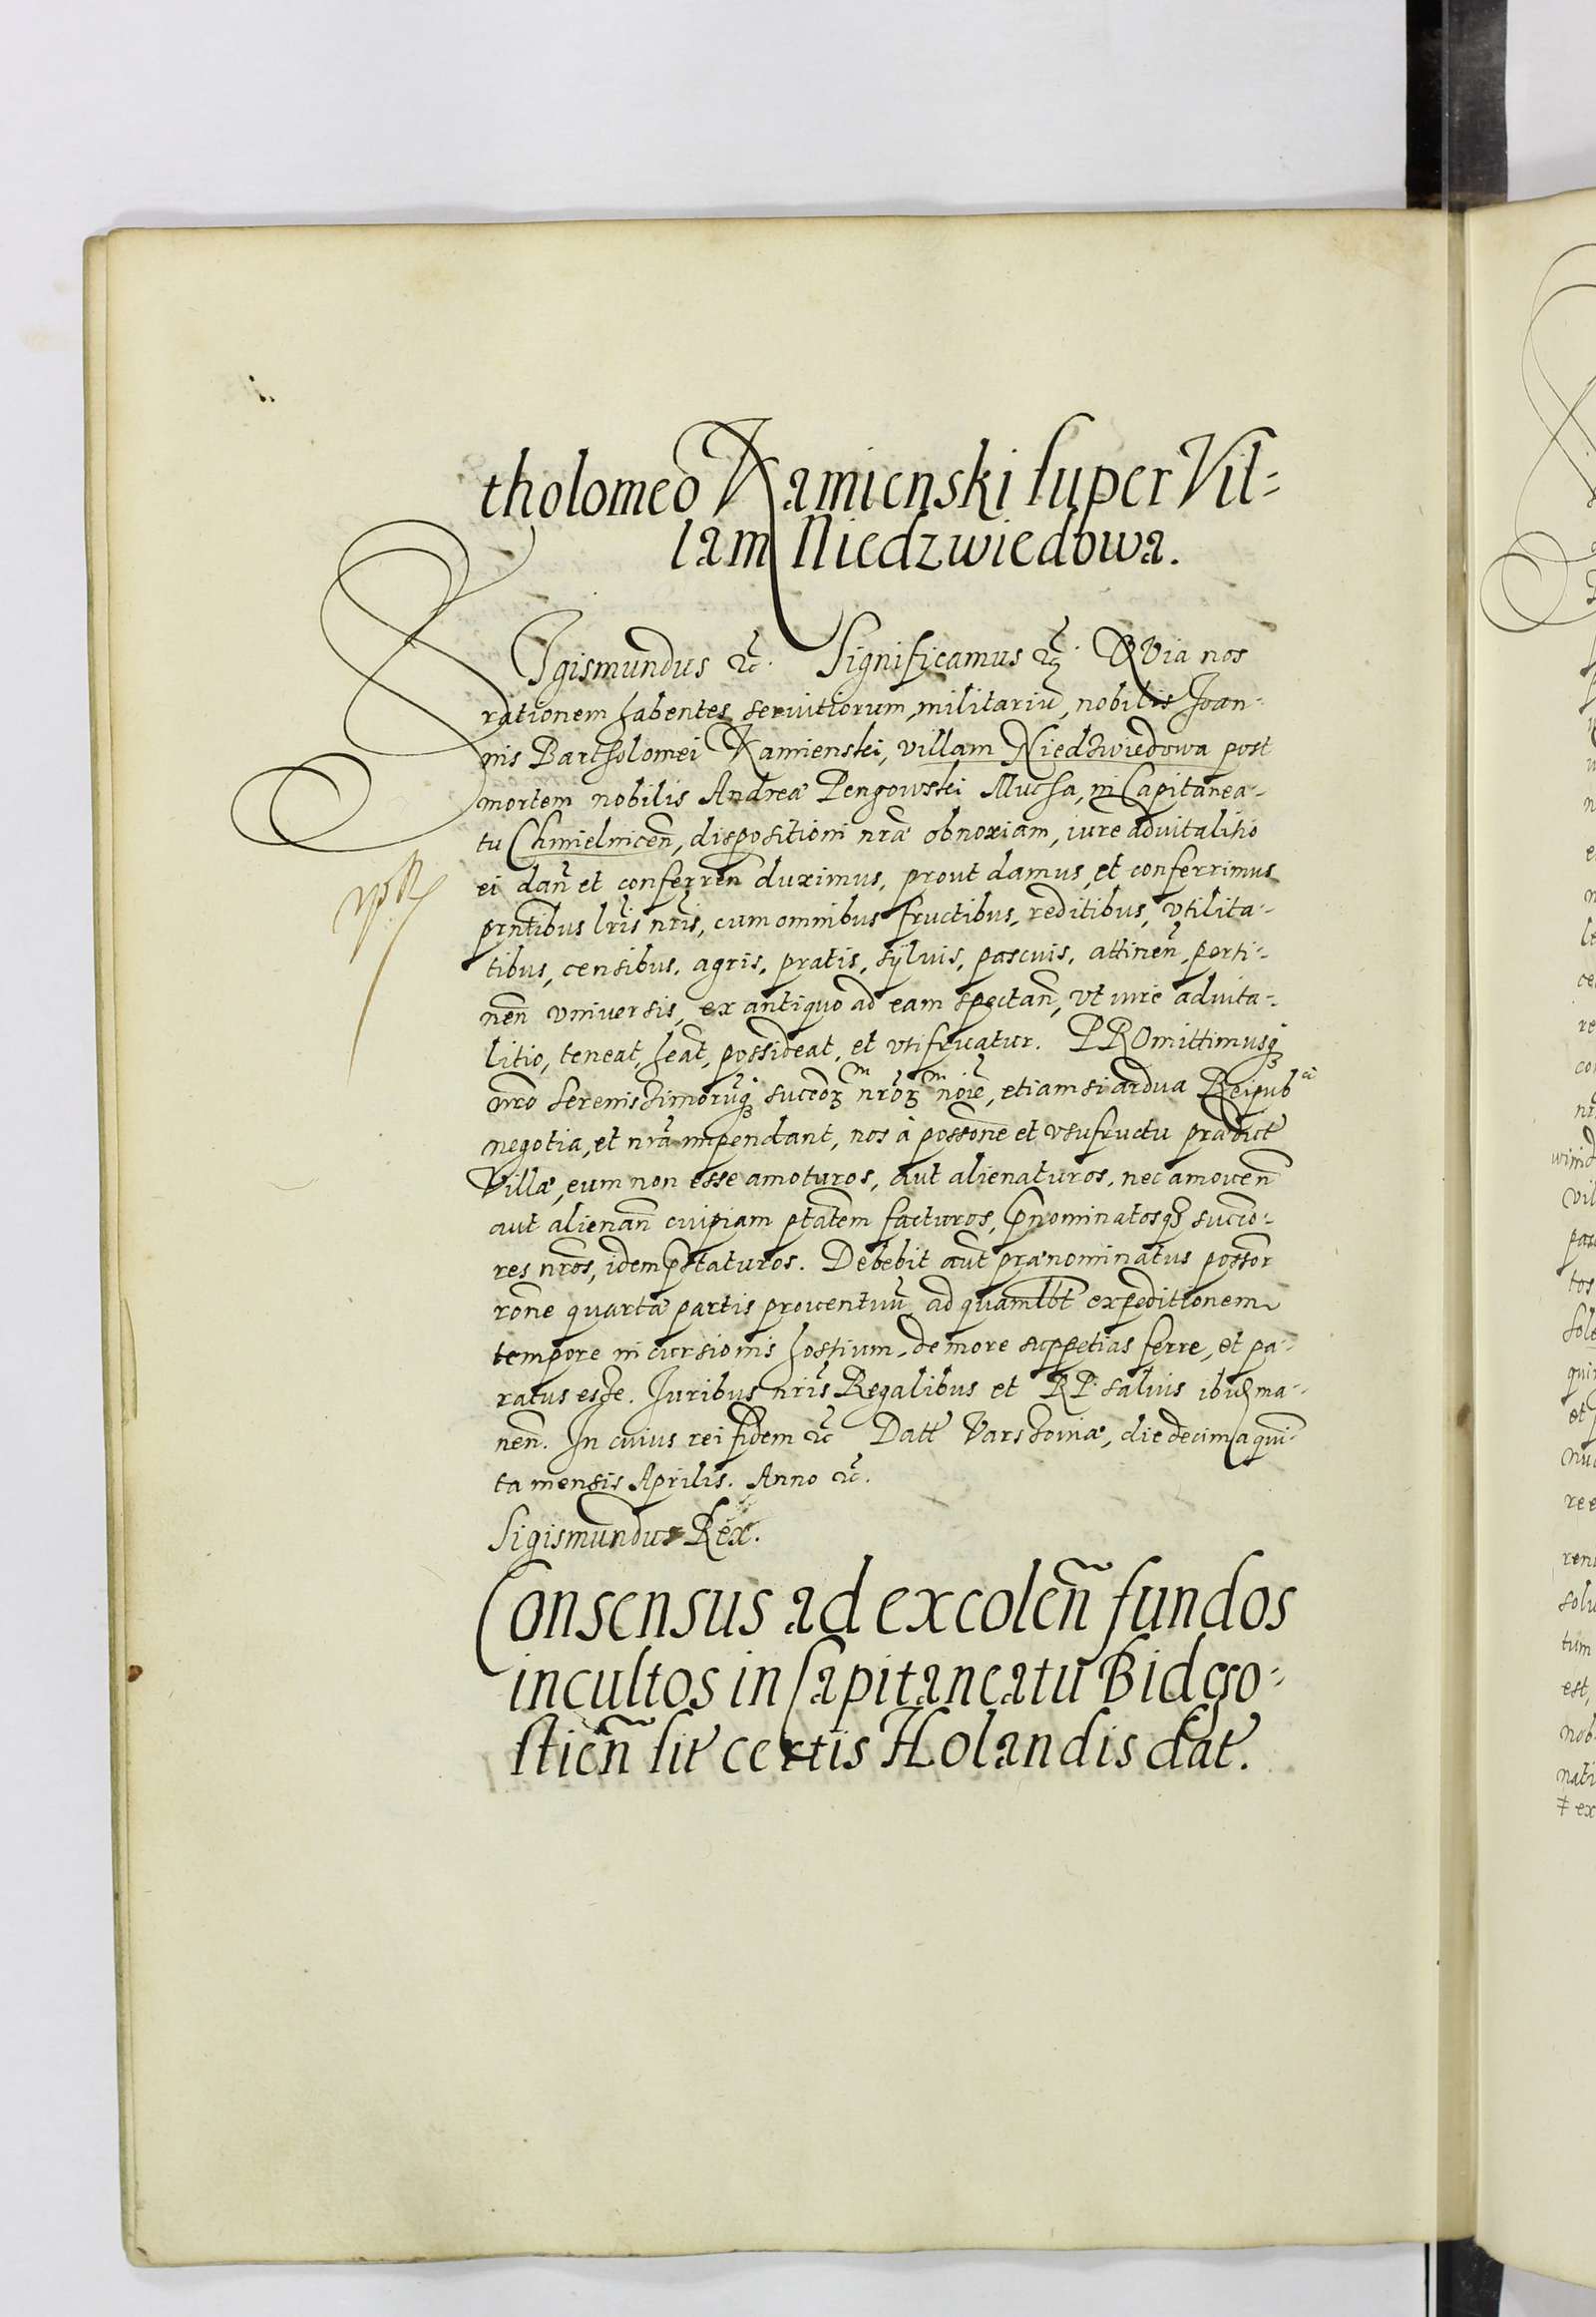 tholomeo Kamienski super Vil=
lam Niedzwiedowa.
SIgismundus &c̃. Significamus &c̃. QVia nos
rationem habentes servitiorum, militariũ, nobilis Joan-
nis Bartholomei Kamienski, villam Niedzwiedowa post
mortem nobilis Andreæ Pengowski Mucha, in Capitanea-
tu Chmielnicen̄, dispositioni nr̃æ obnoxiam, iure advitalitio
ei dan̄ et conferren̄ duximus, prout damus, et conferrimus
pr̃ntibus lr̃is nr̃is, cum omnibus fructibus, reditibus, vtilita-
tibus, censibus, agris, pratis, sÿluis, pascuis, attinen̄, perti-
nen̄ vniversis, ex antiquo ad eam spectan̄, vt iure advita-
litio, teneat, heãt, possideat, et vtifruatur. PROmittimusqꝫ
nr̃o Serenissimorũqꝫ succeoꝝ nr̃oꝝ noiẽ, etiamsi ardua Reipub
negotia, et nr̃a impendant, nos à possone̅ et vsufructu prædictæ
Villæ, eum non esse amoturos, aut alienaturos, nec amoven̄
aut alienan̄ cuipiam ptãtem facturos, Pnominatosqꝫ succo-
res nr̃os, idem pstaturos. Debebit aut̃ prænominatus possor
rõne quartæ partis proventuũ, ad quamlbt expeditionem
tempore incursionis hostium, de more suppetias ferre, et pa-
ratus esse. Juribus nr̃is Regalibus et RP. salvis ibidꝫ ma-
nen̄. In cuius rei fidem &c̃ Datt Varshoviæ, die decima quin-
ta mensis Aprilis. Anno &c̃.
Sigismundus Rex.
Consensus ad excolen̄ fundos
incultos in Capitaneatu Bidgo=
stien̄ sit̃ certis Holandis dat̃.